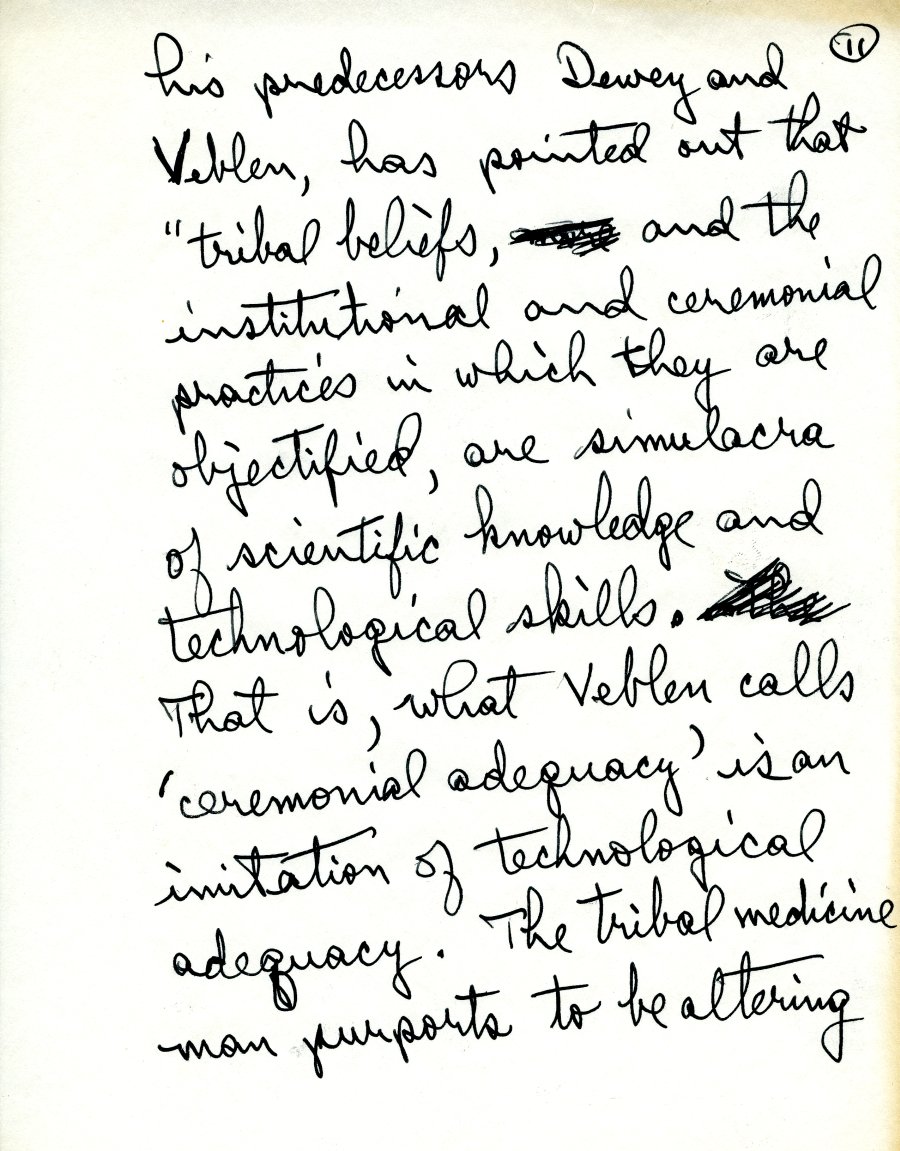 11
his predecessors Dewey and
Veblen, has pointed out that
"tribal beliefs, and the
institutional and ceremonial
practices in which they are
objectified, are simulacra
of scientific knowledge and
technological skills.
That is, what Veblen calls
'ceremonial adequacy' is an
imitation of technological
adequacy. The tribal medicine
man purports to be altering